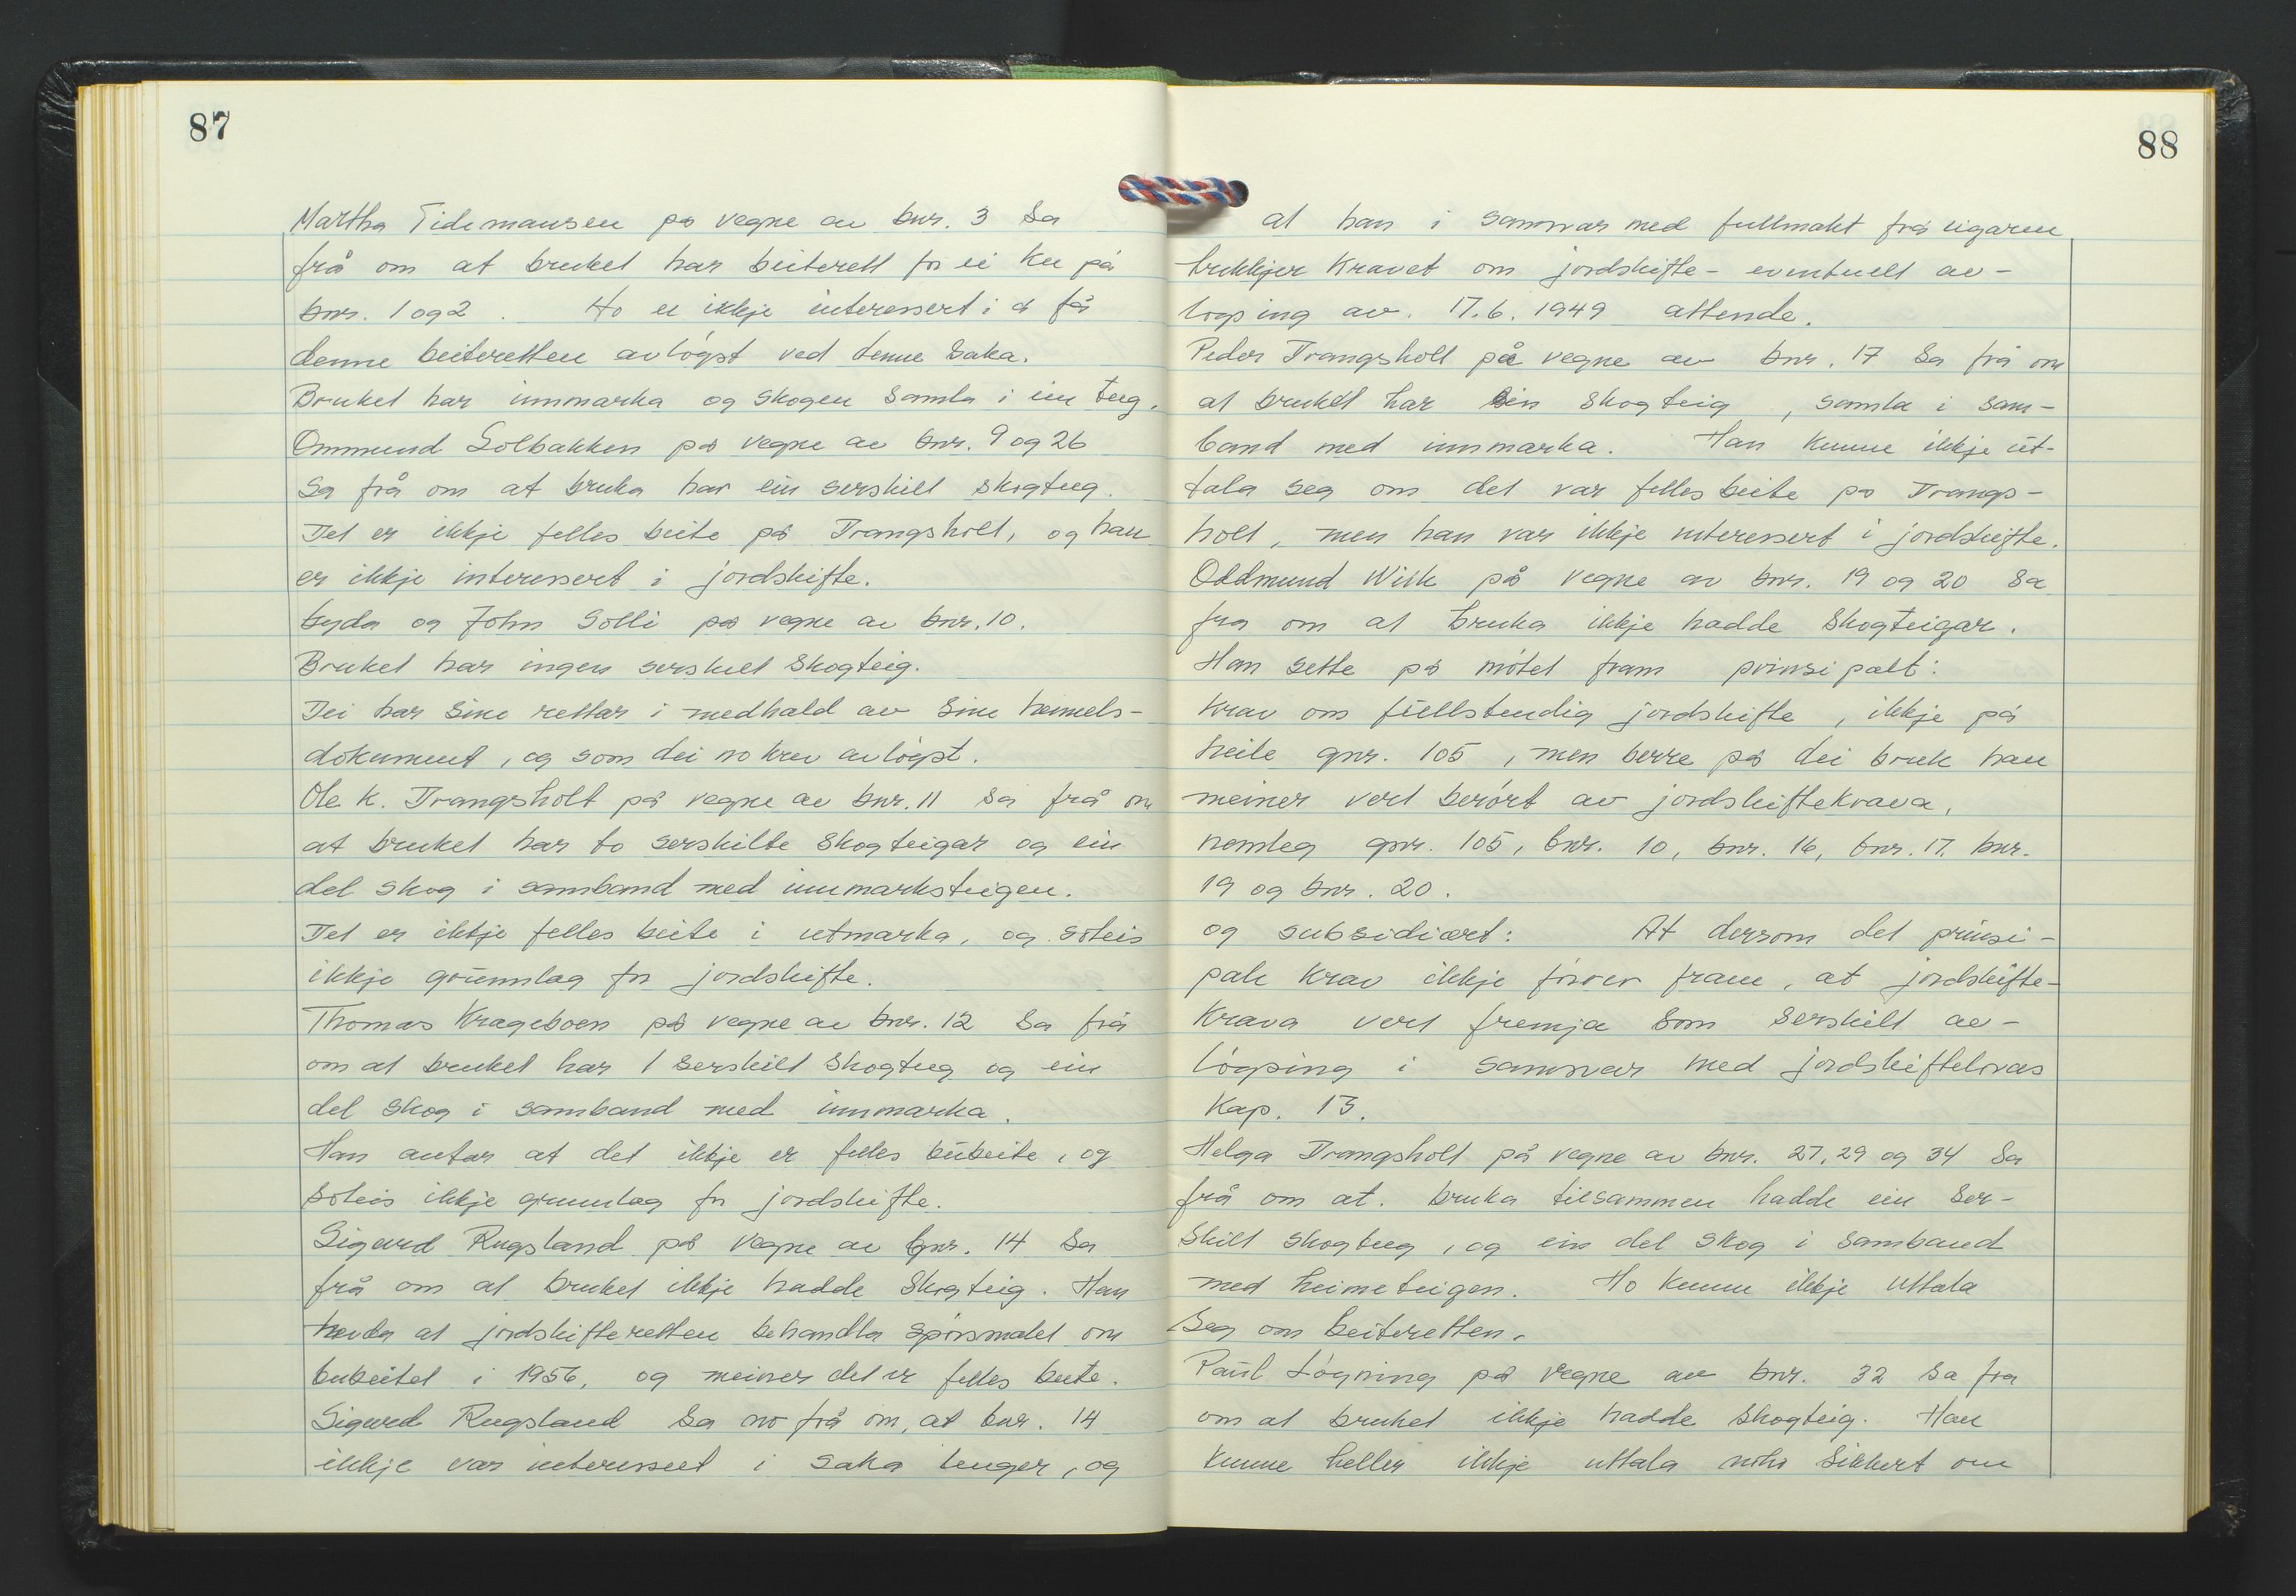 87
Martha Tidemansen på vegne av bnr. 3 sa
frå om at bruket har beiterett for ei ku på
bnr. 1 og 2. Ho er ikkje interessert i å få
denne beiteretten avløyst ved denne saka.
Bruket har innmarka og skogen samla i ein teig.
Ommund Solbakken på vegne av bnr. 9 og 26
sa frå om at bruka har ein serskilt skogteig.
Det er ikkje felles beite på Trangsholt, og han
er ikkje interessert i jordskifte.
Gyda og John Solli på vegne av bnr. 10.
Bruket har ingen serskilt skogteig.
Dei har sine rettar i medhald av sine heimels-
dokument, og som dei no krev avløyst.
Ole K. Trangsholt på vegne av bnr. 11 sa frå om
at bruket har to serskilte skogteigar og ein
del skog i samband med innmarksteigen.
Det er ikkje felles beite i utmarka, og soleis
ikkje grunnlag for jordskifte.
Thomas Krageboen på vegne av bnr. 12 sa frå
om at bruket har 1 serskilt skogteig og ein
del skog i samband med innmarka.
Han antar at det ikkje er felles bubeite, og
soleis ikkje grunnlag for jordskifte.
Sigurd Rugsland på vegne av bnr. 14 sa
frå om at bruket ikkje hadde skogteig. Han
hevda at jordskifteretten behandla spørsmålet om
bubeitet i 1956, og meiner det er felles beite.
Sigurd Rugsland sa no frå om, at bnr. 14
ikkje var interessert i saka lenger, og
88
at han i samsvar med fullmakt frå eigaren
trekkjer kravet om jordskifte - eventuelt av-
løysing av 17.6.1949 attende.
Peder Trangsholt på vegne av bnr. 17 sa frå om
at bruket har ein skogteig, samla i sam-
band med innmarka. Han kunne ikkje ut-
tala seg om det var felles beite på Trangs-
holt, men han var ikkje interessert i jordskifte.
Oddmund Wiik på vegne av bnr. 19 og 20 sa
fra om at bruka ikkje hadde skogteigar.
Han sette på møtet fram prinsipalt:
Krav om fullstendig jordskifte, ikkje på
heile gnr. 105, men berre på dei bruk han
meiner vert berørt av jordskiftekrava,
nemleg gnr. 105, bnr. 10, bnr. 16, bnr. 17. bnr.
19 og bnr. 20.
og subsidiært: At dersom det prinsi-
pale krav ikkje fører fram, at jordskifte-
krava vert fremja som serskilt av-
løysing i samsvar med jordskiftelovas
Kap. 13.
Helga Trangsholt på vegne av bnr. 27, 29 og 34 sa
frå om at. bruka tilsammen hadde ein ser-
skilt skogteig, og ein del skog i samband
med heimeteigen. Ho kunne ikkje uttala
seg om beiteretten.
Paul Løgning på vegne av bnr. 32 sa fra
om at bruket ikkje hadde skogteig. Han
kunne heller ikkje uttala noko sikkert om